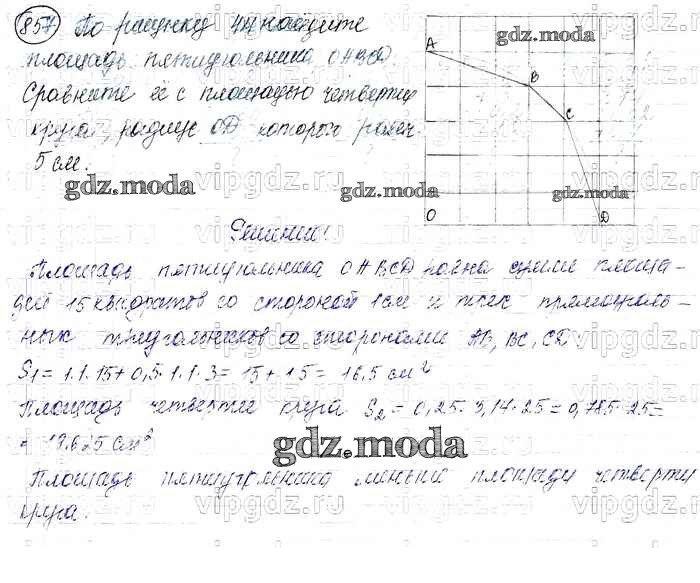 857. По рисунку 44 найдите
площадь пятиугольника OABCD.
Сравните её с площадью четверти
круга, радиус OD которого равен
5 см.
A
B
C
O
D
Решение:
Площадь пятиугольника OABCD равна сумме площа-
дей 15 квадратов со стороной 1 см и трёх прямоуголь-
ных треугольников со сторонами AB, BC, CD
S1 = 1·1·15 + 0,5·1·1·3 = 15 + 1,5 = 16,5 см²
Площадь четверти круга S2 = 0,25·3,14·25 = 0,785·25 =
= 19,625 см²
Площадь пятиугольника меньше площади четверти
круга.
gdz.moda
gdz.moda
gdz.moda
gdz.moda
gdz.moda
vipgdz.ru